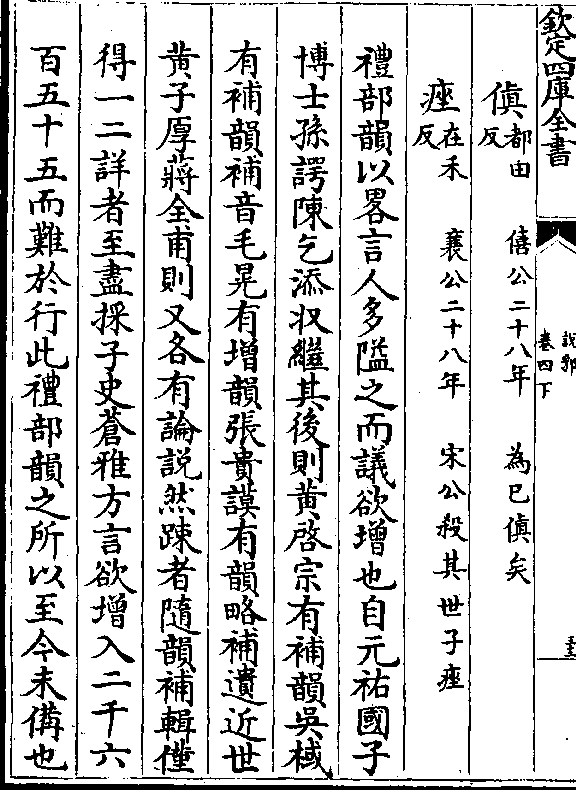 欽定四庫全書
說郛
卷四下
傎都由反 僖公二十八年 為已傎矣
痤在禾反 襄公二十八年 宋公殺其世子痤
禮部韻以畧言人多隘之而議欲增也自元祐國子
博士孫諤陳乞添収繼其後則黃啓宗有補韻吳棫
有補韻補音毛晃有增韻張貴謨有韻略補遺近世
黃子厚蔣全甫則又各有論說然踈者隨韻補輯僅
得一二詳者至盡採子史蒼雅方言欲增入二千六
百五十五而難於行此禮部韻之所以至今未備也